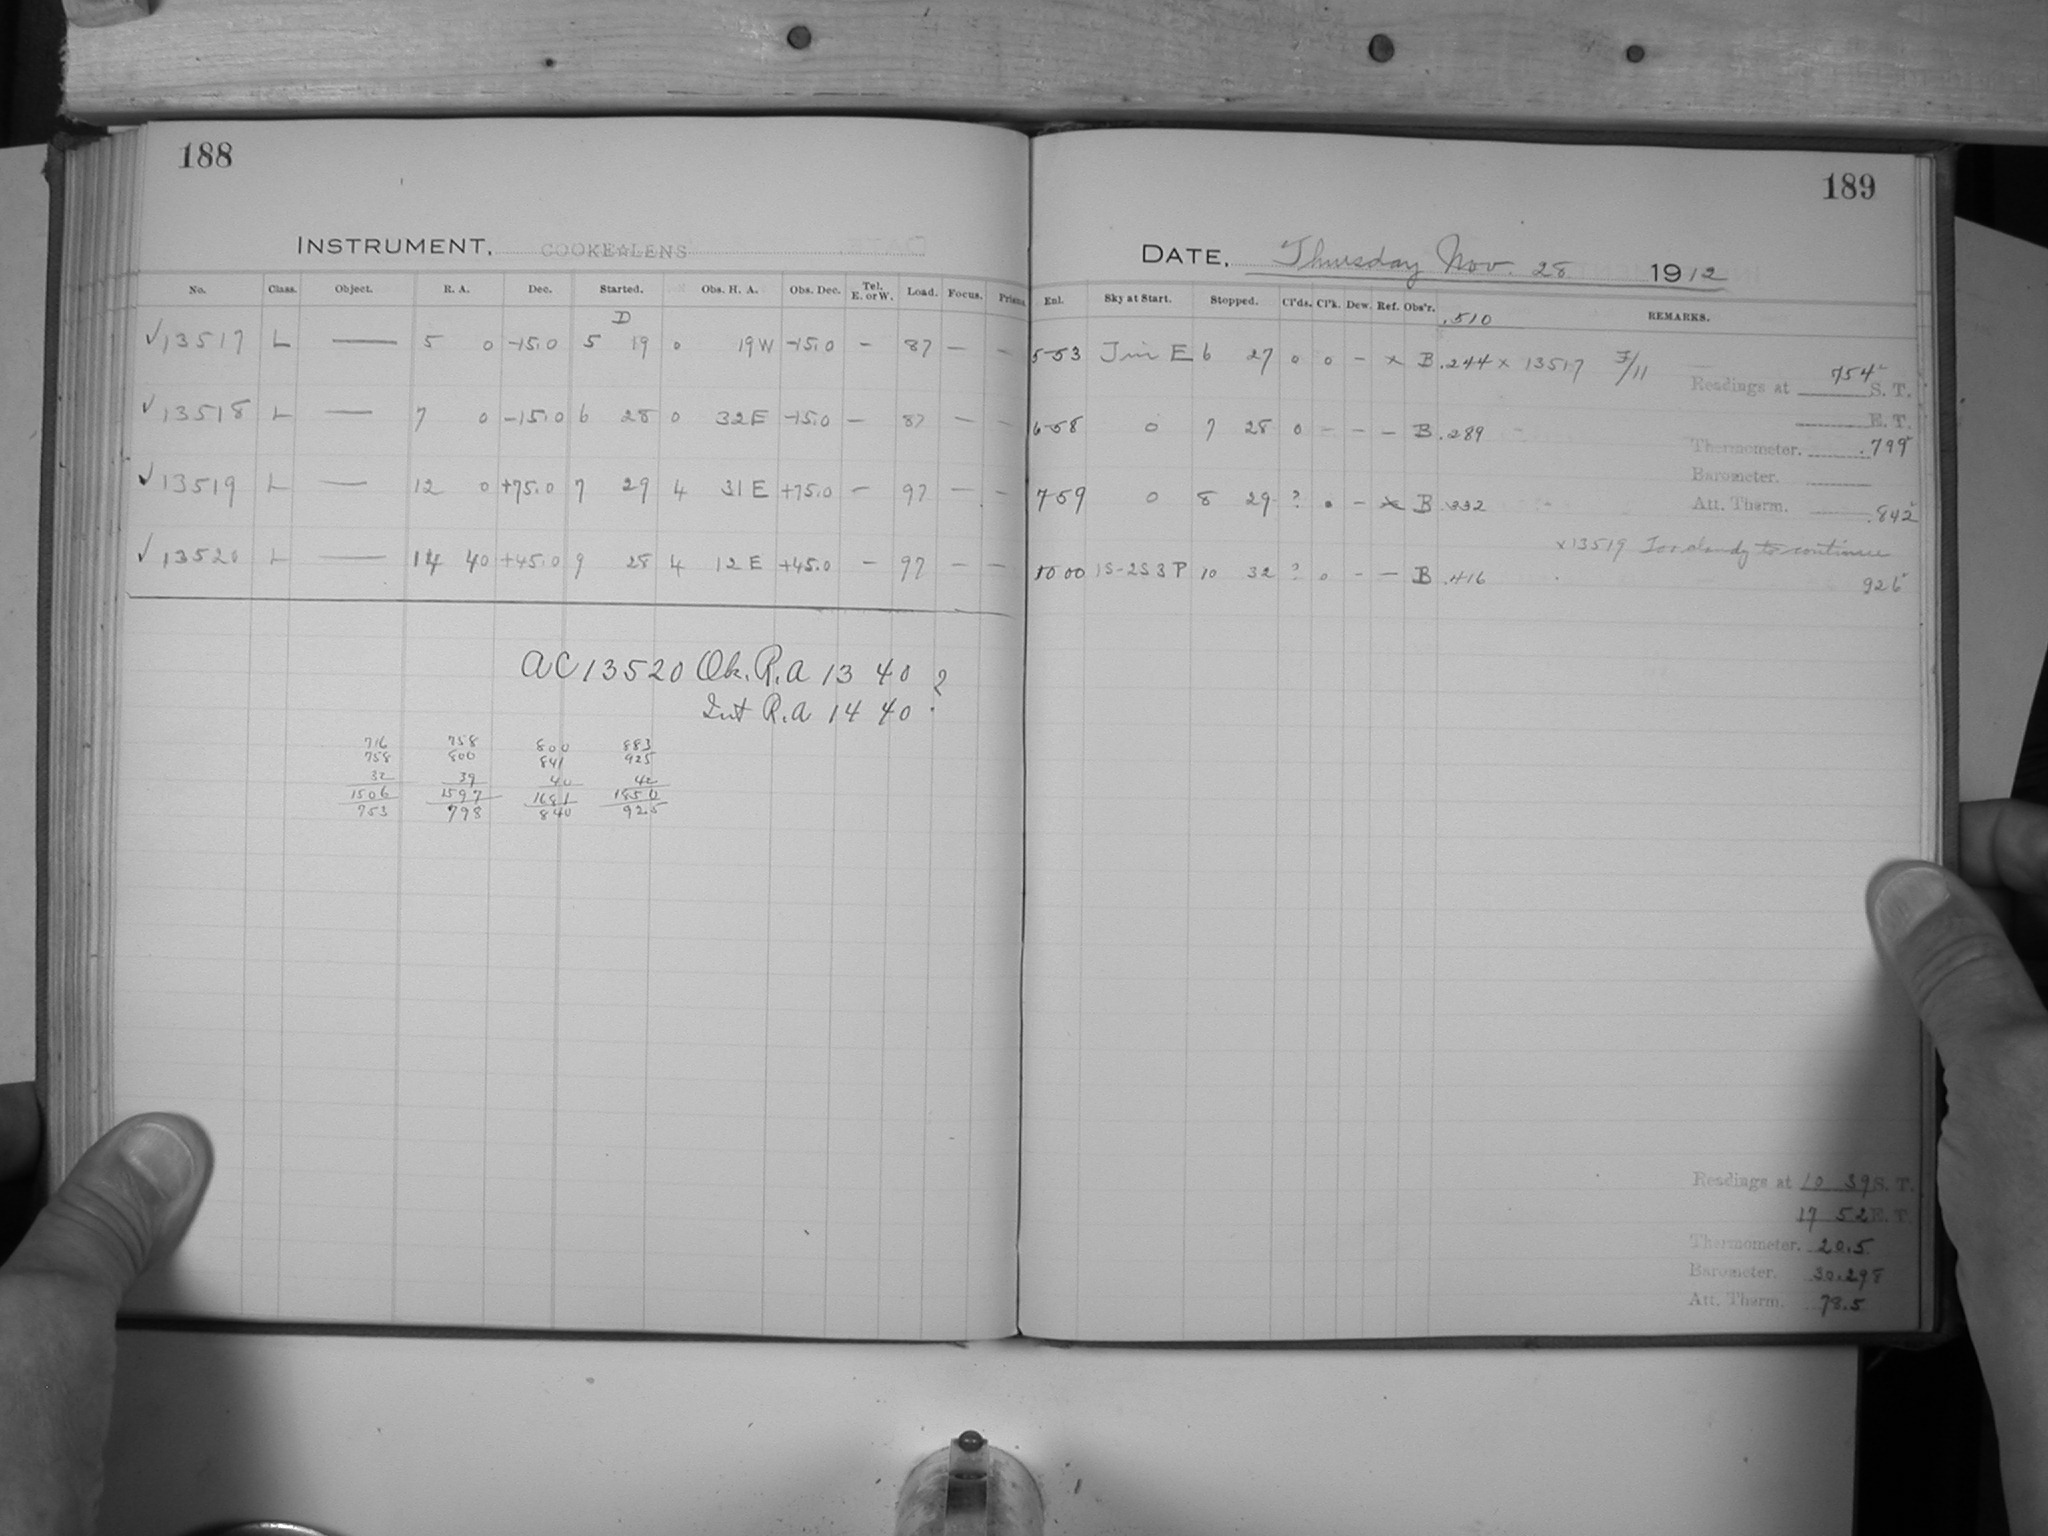 188
INSTRUMENT. COOKE☆LENS
No. Class. Object. R. A. Dec. Started. Obs. H. A. Obs. Dec. Tel. E. or W. Load. Focus. Prisms
D
✓13517 L — 5 0 -15.0 5 19 0 19W -15.0 - 87 — —
✓13518 L — 7 0 -15.0 6 28 0 32E -15.0 — 87 — —
✓13519 L — 12 0 +75.0 7 29 4 31E +75.0 - 97 — —
✓13520 L — 14 40 +45.0 9 28 4 12E +45.0 — 97 — —
AC13520 Ob. R.A 13 40 ?
Int R.A 14 40
716 758 800 883
758 800 841 925
32 39 40 42
1506 1597 1681 1850
753 798 840 925
189
DATE. Thursday Nov. 28 1912
Enl. Sky at Start. Stopped. Cl'ds. Cl'k. Dew. Ref. Obs'r. REMARKS.
.510
5-53 E 6 27 0 0 - x B .244 x 13517 F/11
Readings at 754 S. T.
E. T.
6-58 0 7 28 0 - - - B .289
Thermometer. .799
Barometer.
7-59 0 8 29 ? . - x B .332
Att. Therm. .842
x13519 Too cloudy to continue
10 00 1S-2S 3P 10 32 ? 0 - — B .416
926
Readings at 10 39 S. T.
17 52 E. T.
Thermometer. 20.5
Barometer. 30.298
Att. Therm. 78.5